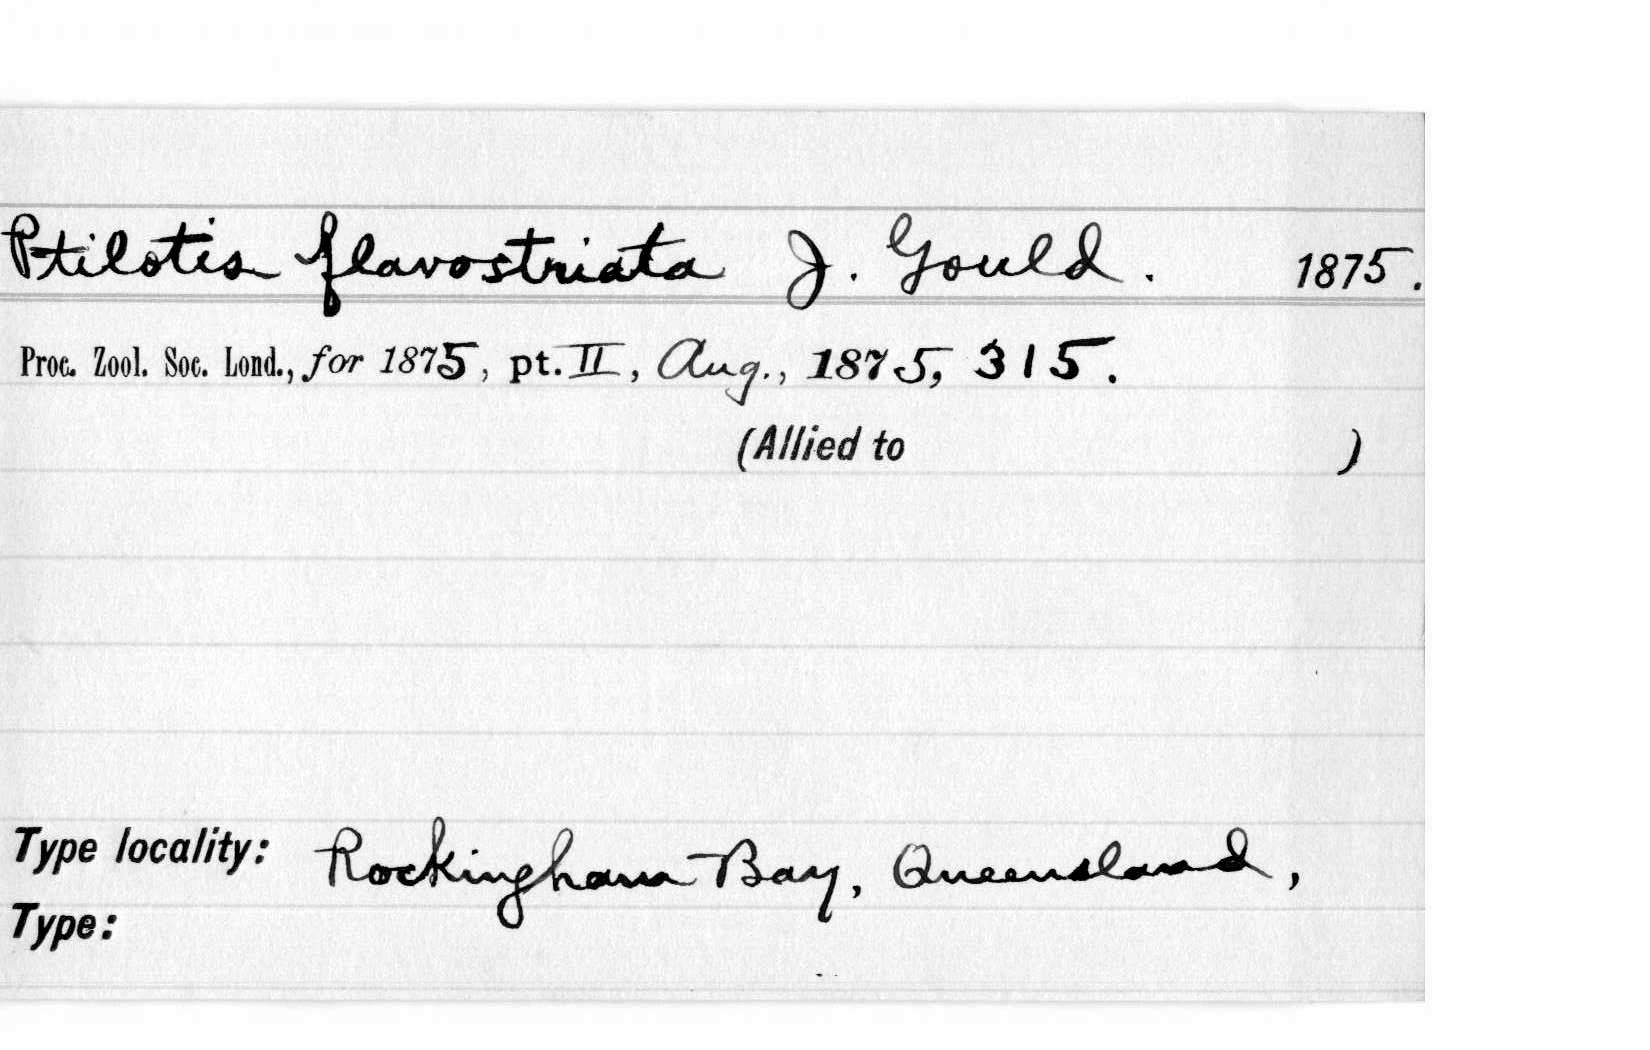 Ptilotis flavostriata J. Gould. 1875.
Proc. Zool. Soc. Lond., for 1875, pt. II, Aug., 1875, 315.
(Allied to )
Type locality: Rockingham Bay, Queensland,
Type: